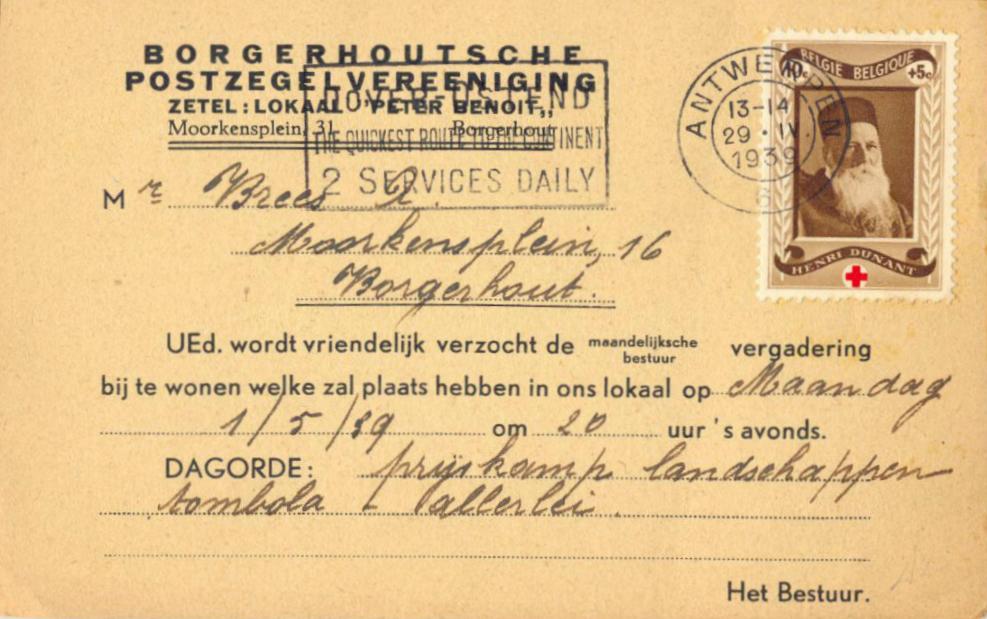 BORGERHOUTSCHE
POSTZEGELVEREENIGING
ZETEL: LOKAAL "PETER BENOIT„
Moorkensplein, 31 Borgerhout
DOVER-OSTEND
THE QUICKEST ROUTE TO THE CONTINENT
2 SERVICES DAILY
ANTWERPEN
13-14
29 · IV
1939
BELGIE BELGIQUE
10c +5c
HENRI DUNANT
Mr Brees A.
Moorkensplein, 16
Borgerhout.
UEd. wordt vriendelijk verzocht de maandelijksche bestuur vergadering
bij te wonen welke zal plaats hebben in ons lokaal op Maandag
1/5/39 om 20 uur 's avonds.
DAGORDE: prijskamp landschappen
tombola - allerlei.
Het Bestuur.